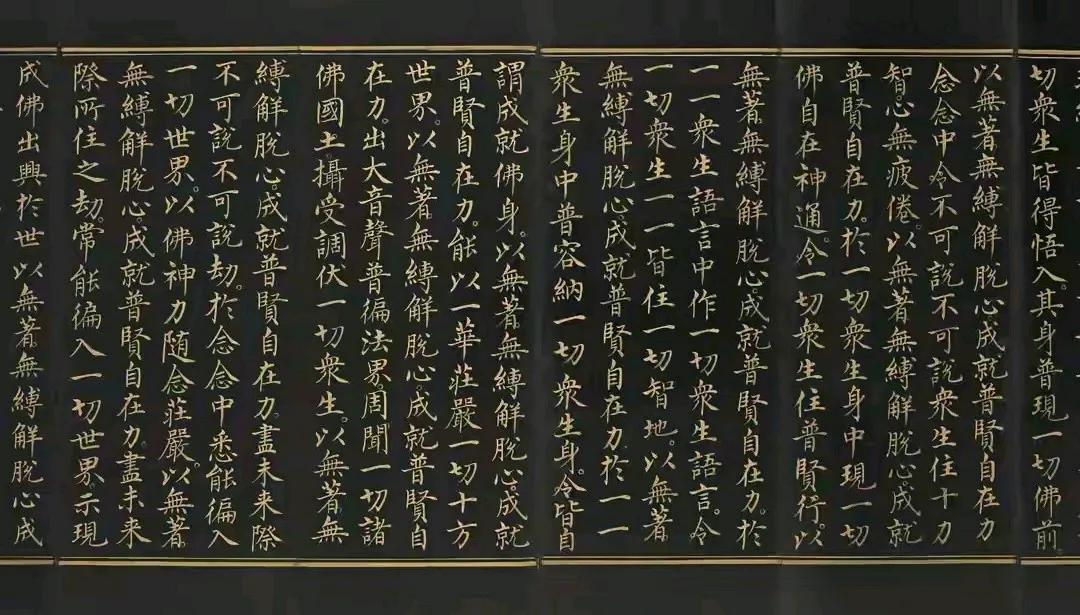 切衆生皆得悟入。其身普現一切佛前。
以無著無縛解脫心成就普賢自在力
念念中令不可說不可說衆生住十力
智。心無疲倦。以無著無縛解脫心。成就
普賢自在力。於一切衆生身中現一切
佛自在神通。令一切衆生住普賢行。以
無著無縛解脫心。成就普賢自在力。於
一一衆生語言中作一切衆生語言。令
一切衆生一一皆住一切智地。以無著
無縛解脫心。成就普賢自在力。於一一
衆生身中普容納一切衆生身。令皆自
謂成就佛身。以無著無縛解脫心。成就
普賢自在力。能以一華莊嚴一切十方
世界。以無著無縛解脫心成就普賢自
在力。出大音聲普徧法界周聞一切諸
佛國土。攝受調伏一切衆生。以無著無
縛解脫心。成就普賢自在力。盡未來際
不可說不可說劫。於念念中悉能徧入
一切世界。以佛神力隨念莊嚴。以無著
無縛解脫心。成就普賢自在力。盡未來
際所住之劫。常能徧入一切世界。示現
成佛出興於世以無著無縛解脫心成